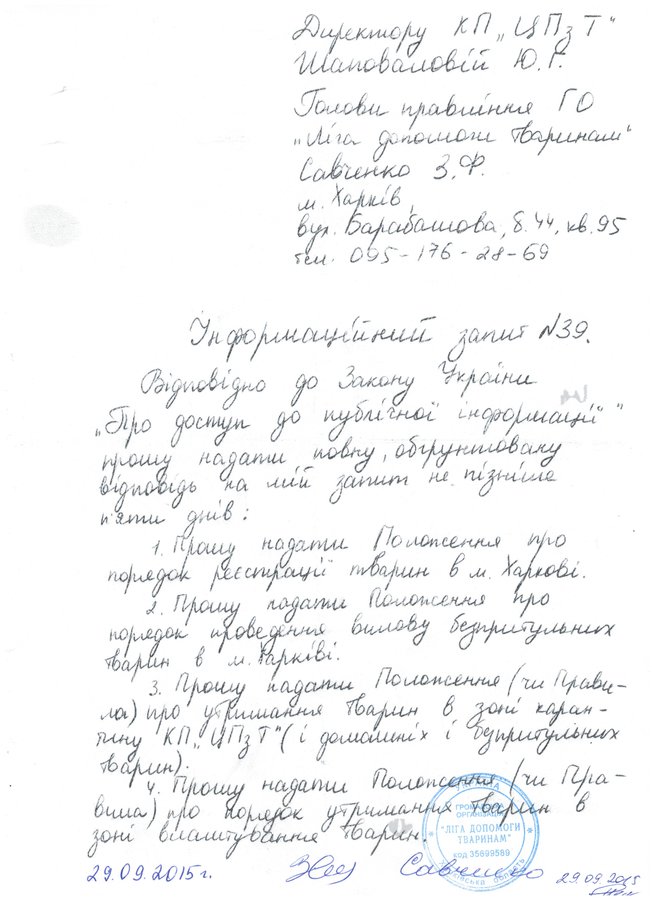 Директору КП „ЦПзТ"
Шаповаловій Ю.Г.
Голови правління ГО
„Ліга допомоги тваринам"
Савченко З.Ф.
м. Харків,
вул. Барабашова, б. 44, кв. 95
тел. 095-176-28-69
Інформаційний запит №39.
Відповідно до Закону України
„Про доступ до публічної інформації"
прошу надати повну, обгрунтовану
відповідь на мій запит не пізніше
п'яти днів:
1. Прошу надати Положення про
порядок реєстрації тварин в м. Харкові.
2. Прошу надати Положення про
порядок проведення вилову безпритульних
тварин в м. Харківі.
3. Прошу надати Положення (чи Прави-
ла) про утримання тварин в зоні каран-
тину КП „ЦПзТ" (і домашніх і безпритульних
тварин).
4. Прошу надати Положення (чи Пра-
вила) про порядок утримання тварин в
зоні влаштування тварин.
ГРОМАДСЬКА
ОРГАНІЗАЦІЯ
"ЛІГА ДОПОМОГИ
ТВАРИНАМ"
код 35699589
29.09.2015 г. Савченко 29.09.2015